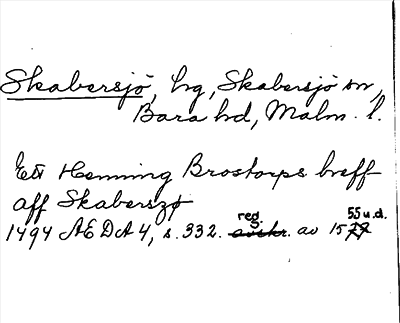 Skabersjö, hg, Skabersjö sn,
Bara hd, Malm. l.
Ett Henning Brostorps breff
aff Skaberszø
1494 ÆDA 4, s. 332. reg. avskr. av 1555 u.d.